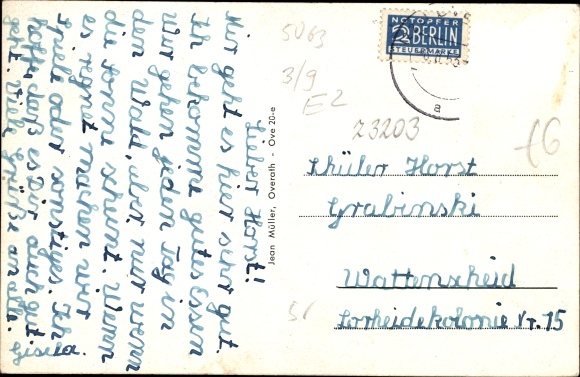 Lieber Horst!
Mir geht es hier sehr gut.
Ich bekomme gutes Essen
Wir gehen jeden Tag in
den Wald, aber nur wenn
die Sonne scheint. Wenn
es regnet machen wir
Spiele oder sonstiges. Ich
hoffe daß es Dir auch gut
geht. Viele Grüße an alle.
Gisela.
Jean Müller, Overath - Öve 20-e
NOTOPFER
2 BERLIN
STEUERMARKE
a
5063
3/9
E2
23203
£6
Schüler Horst
Grabinski
Wattenscheid
Lorheidekolonie Nr. 15